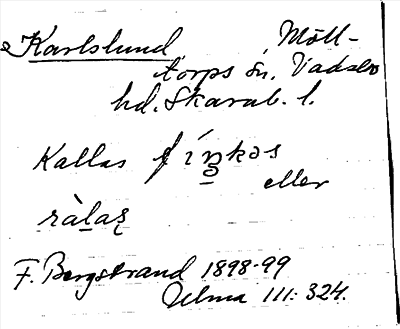 Karlslund, Mölltorps sn. Vadsbo
hd. Skarab. l.
Kallas
eller
F. Bergstrand 1898-99
Ulma 111:324.